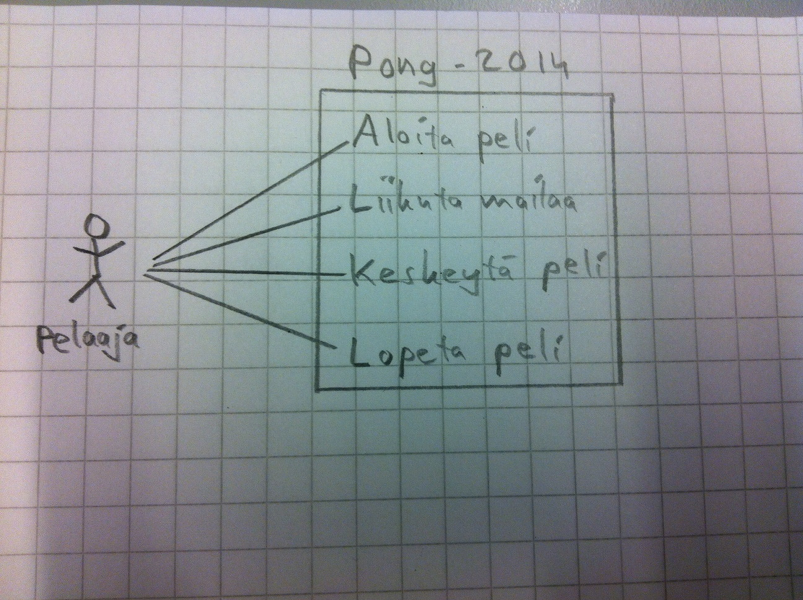 Pong - 2014
Aloita peli
Liikuta mailaa
Keskeytä peli
Lopeta peli
Pelaaja